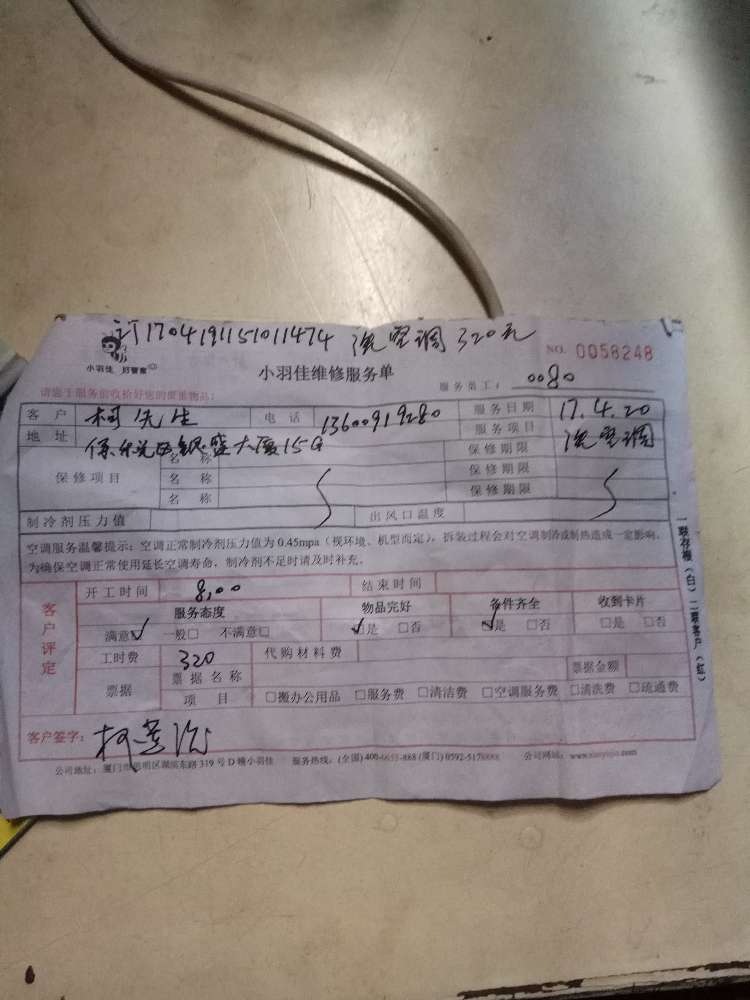 订1704191151011474 洗空调 320元
NO. 0058248
小羽佳 好管家
小羽佳维修服务单
服务员工: 0080
请您于服务前收拾好您的贵重物品:
客户 柯先生 电话 13600919280 服务日期 17.4.20
地址 保税区银盛大厦15G 服务项目 洗空调
保修项目 名称 保修期限
名称 保修期限
名称 保修期限
制冷剂压力值 出风口温度
空调服务温馨提示:空调正常制冷剂压力值为0.45mpa(视环境、机型而定),拆装过程会对空调制冷或制热造成一定影响,
为确保空调正常使用延长空调寿命,制冷剂不足时请及时补充。
客户评定
开工时间 8:00 结束时间
服务态度 物品完好 备件齐全 收到卡片
满意☑ 一般□ 不满意□ ☑是 □否 ☑是 □否 □是 □否
工时费 320 代购材料费
票据 票据名称 票据金额
项目 □搬办公用品 □服务费 □清洁费 □空调服务费 □清洗费 □疏通费
客户签字:
公司地址:厦门市思明区湖滨东路319号D幢小羽佳 服务热线:(全国)400-6655-888 (厦门)0592-5178888 公司网站:www.xiaoyujia.com
一联存根(白) 二联客户(红)